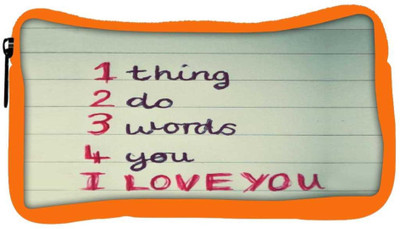 1 thing
2 do
3 words
4 you
I LOVE YOU